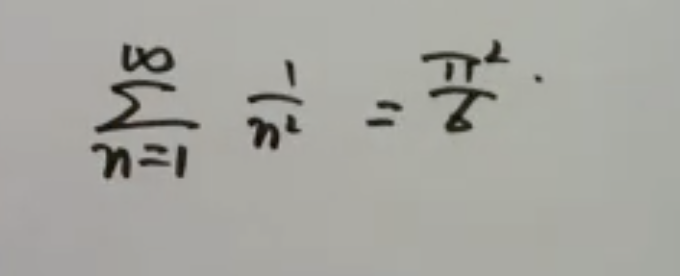 ∑_{n=1}^{∞} 1/n² = π²/6.